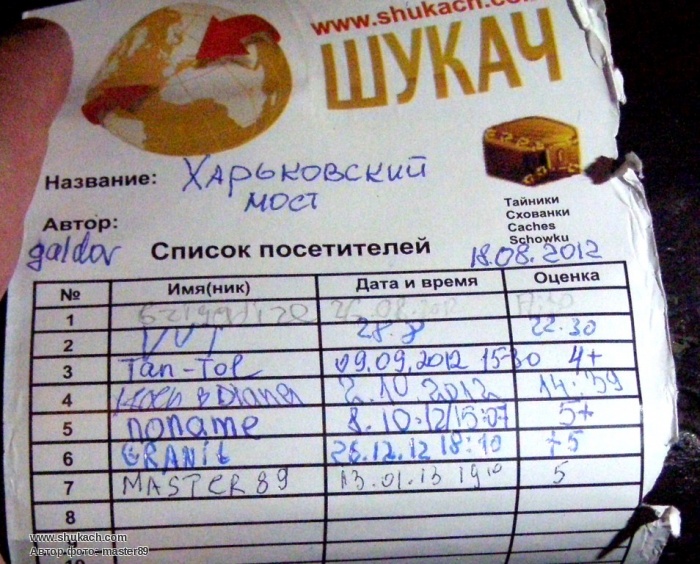 www.shukach.com
ШУКАЧ
Название: Харьковский
мост
Тайники
Схованки
Caches
Schowku
Автор:
galdov
Список посетителей 18.08.2012
№ Имя(ник) Дата и время Оценка
1
2 VVT 28.8 22.30
3 Tan-Tol 09.09.2012 15-30 4+
4 2.10.2012 14:59
5 noname 8.10.12/15:07 5+
6 GRANIT 26.12.12 18:10 +5
7 MASTER89 13.01.13 19 10 5
8
9
10
www.shukach.com
Автор фото: master89